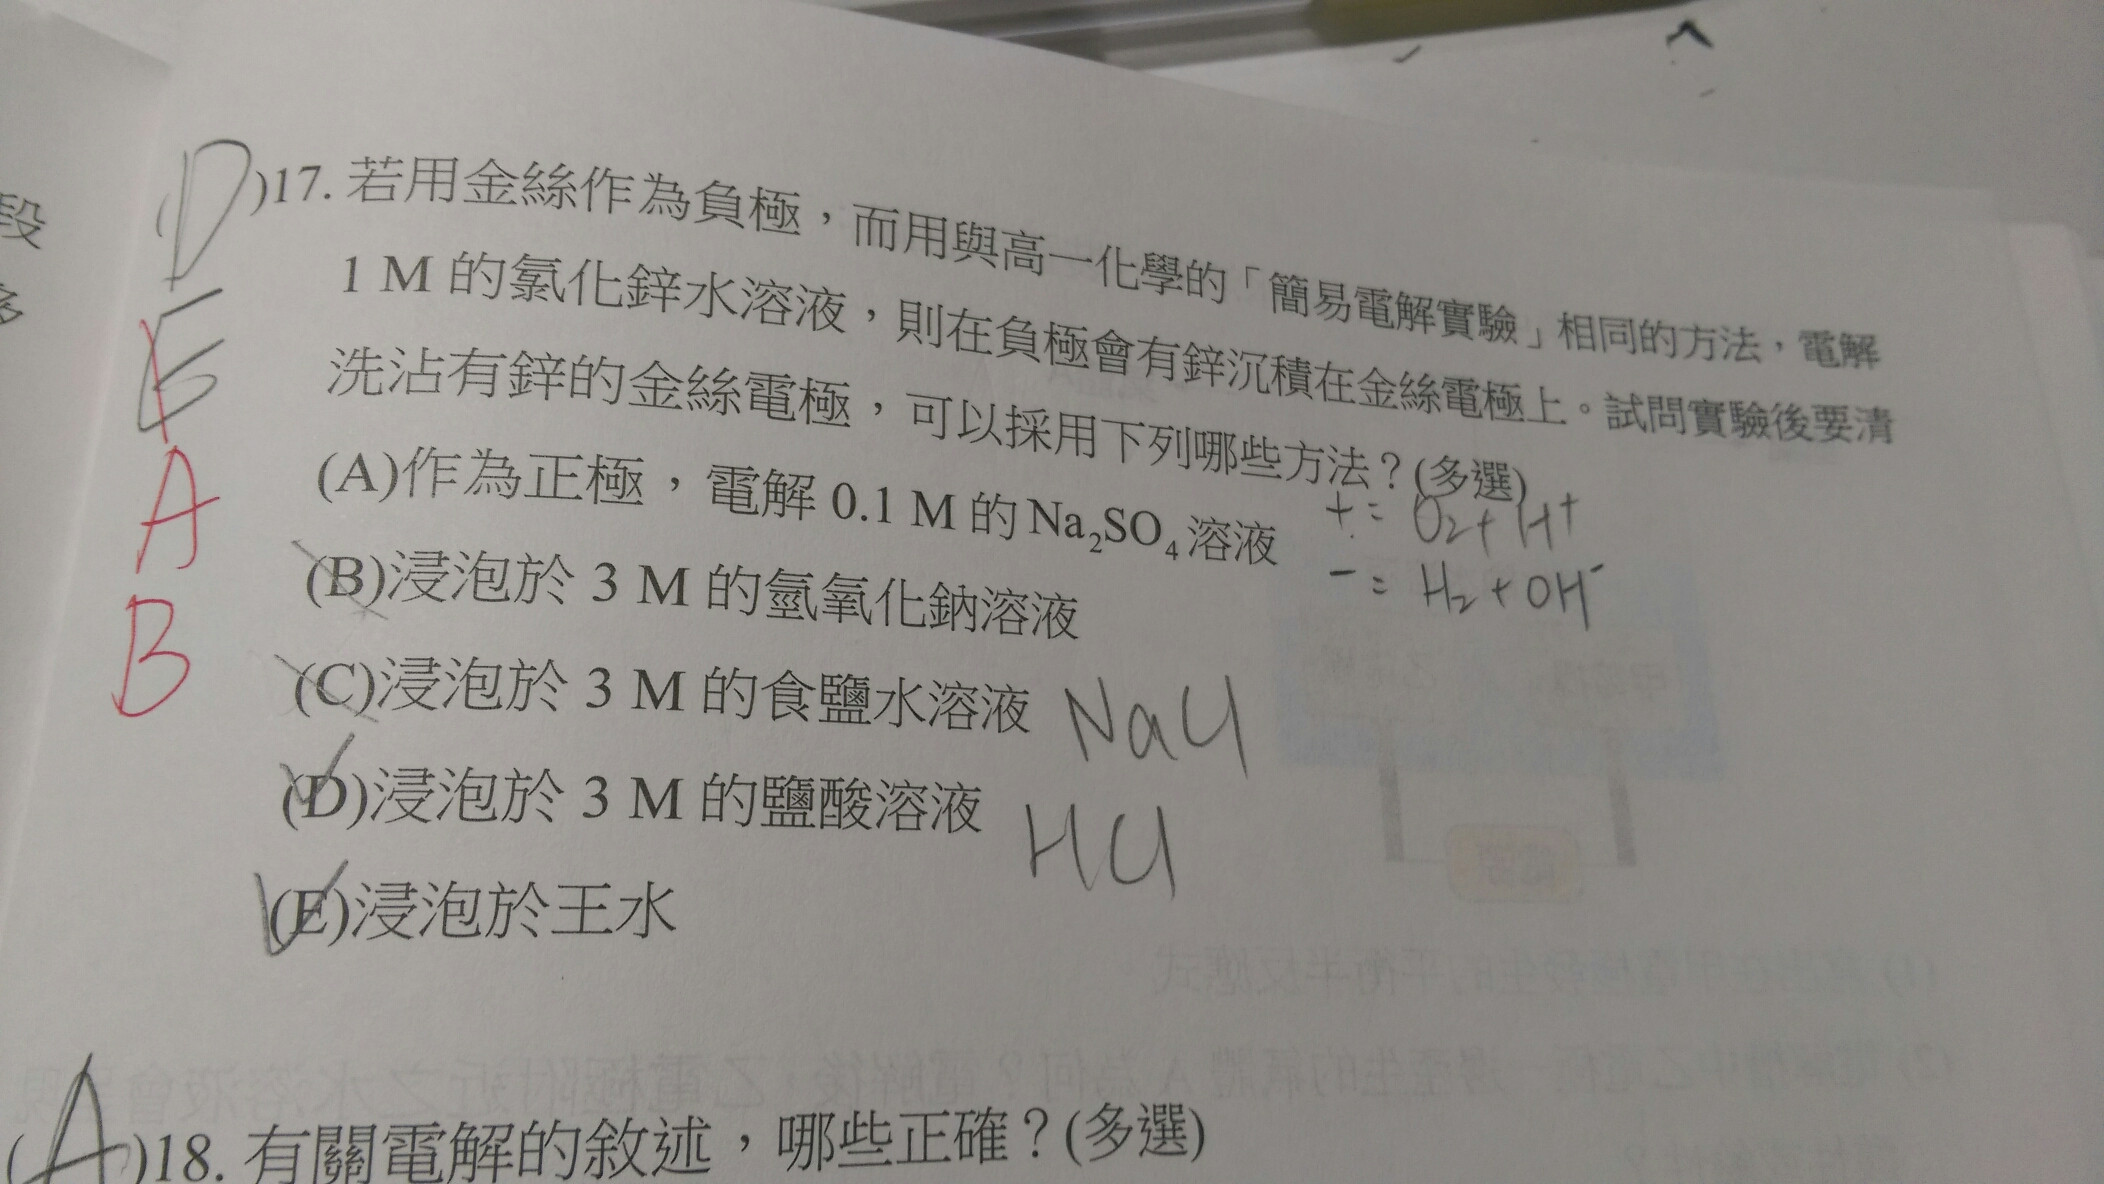 (D)17. 若用金絲作為負極，而用與高一化學的「簡易電解實驗」相同的方法，電解
1 M 的氯化鋅水溶液，則在負極會有鋅沉積在金絲電極上。試問實驗後要清
洗沾有鋅的金絲電極，可以採用下列哪些方法？(多選)
E
A
B
(A)作為正極，電解 0.1 M 的 Na₂SO₄ 溶液
+: O₂+H⁺
-: H₂+OH⁻
(B)浸泡於 3 M 的氫氧化鈉溶液
(C)浸泡於 3 M 的食鹽水溶液 NaCl
(D)浸泡於 3 M 的鹽酸溶液 HCl
(E)浸泡於王水
(A)18. 有關電解的敘述，哪些正確？(多選)
段